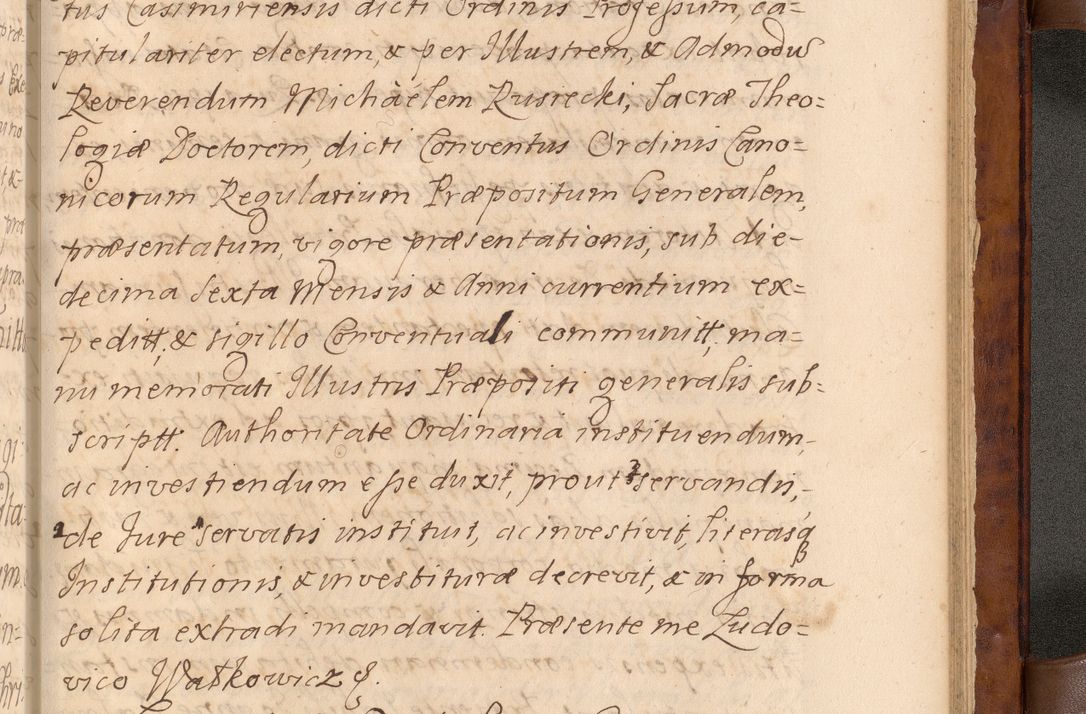 tus Casimiriensis dicti Ordinis Professum, ca=
pitulariter electum, & per Illustrem, & Admodu
Reverendum Michaelem Rusiecki, Sacræ Theo=
logiæ Doctorem, dicti Conventus Ordinis Cano=
nicorum Regularium Præpositum Generalem,
præsentatum, vigore præsentationis, sub die-
decima Sexta Mensis & Anni currentium ex=
peditt, & sigillo Conventuali communitt, ma=
nu memorati Illustris Præpositi generalis sub=
scriptt. Authoritate Ordinaria instituendum,
ac investiendum esse duxit, prout 2servandis,
2de Jure 1servatis instituit, ac investivit, literasq
Institutionis, & investituræ decrevit, & in forma
solita extradi mandavit. Præsente me Ludo=
vico Watkowicz